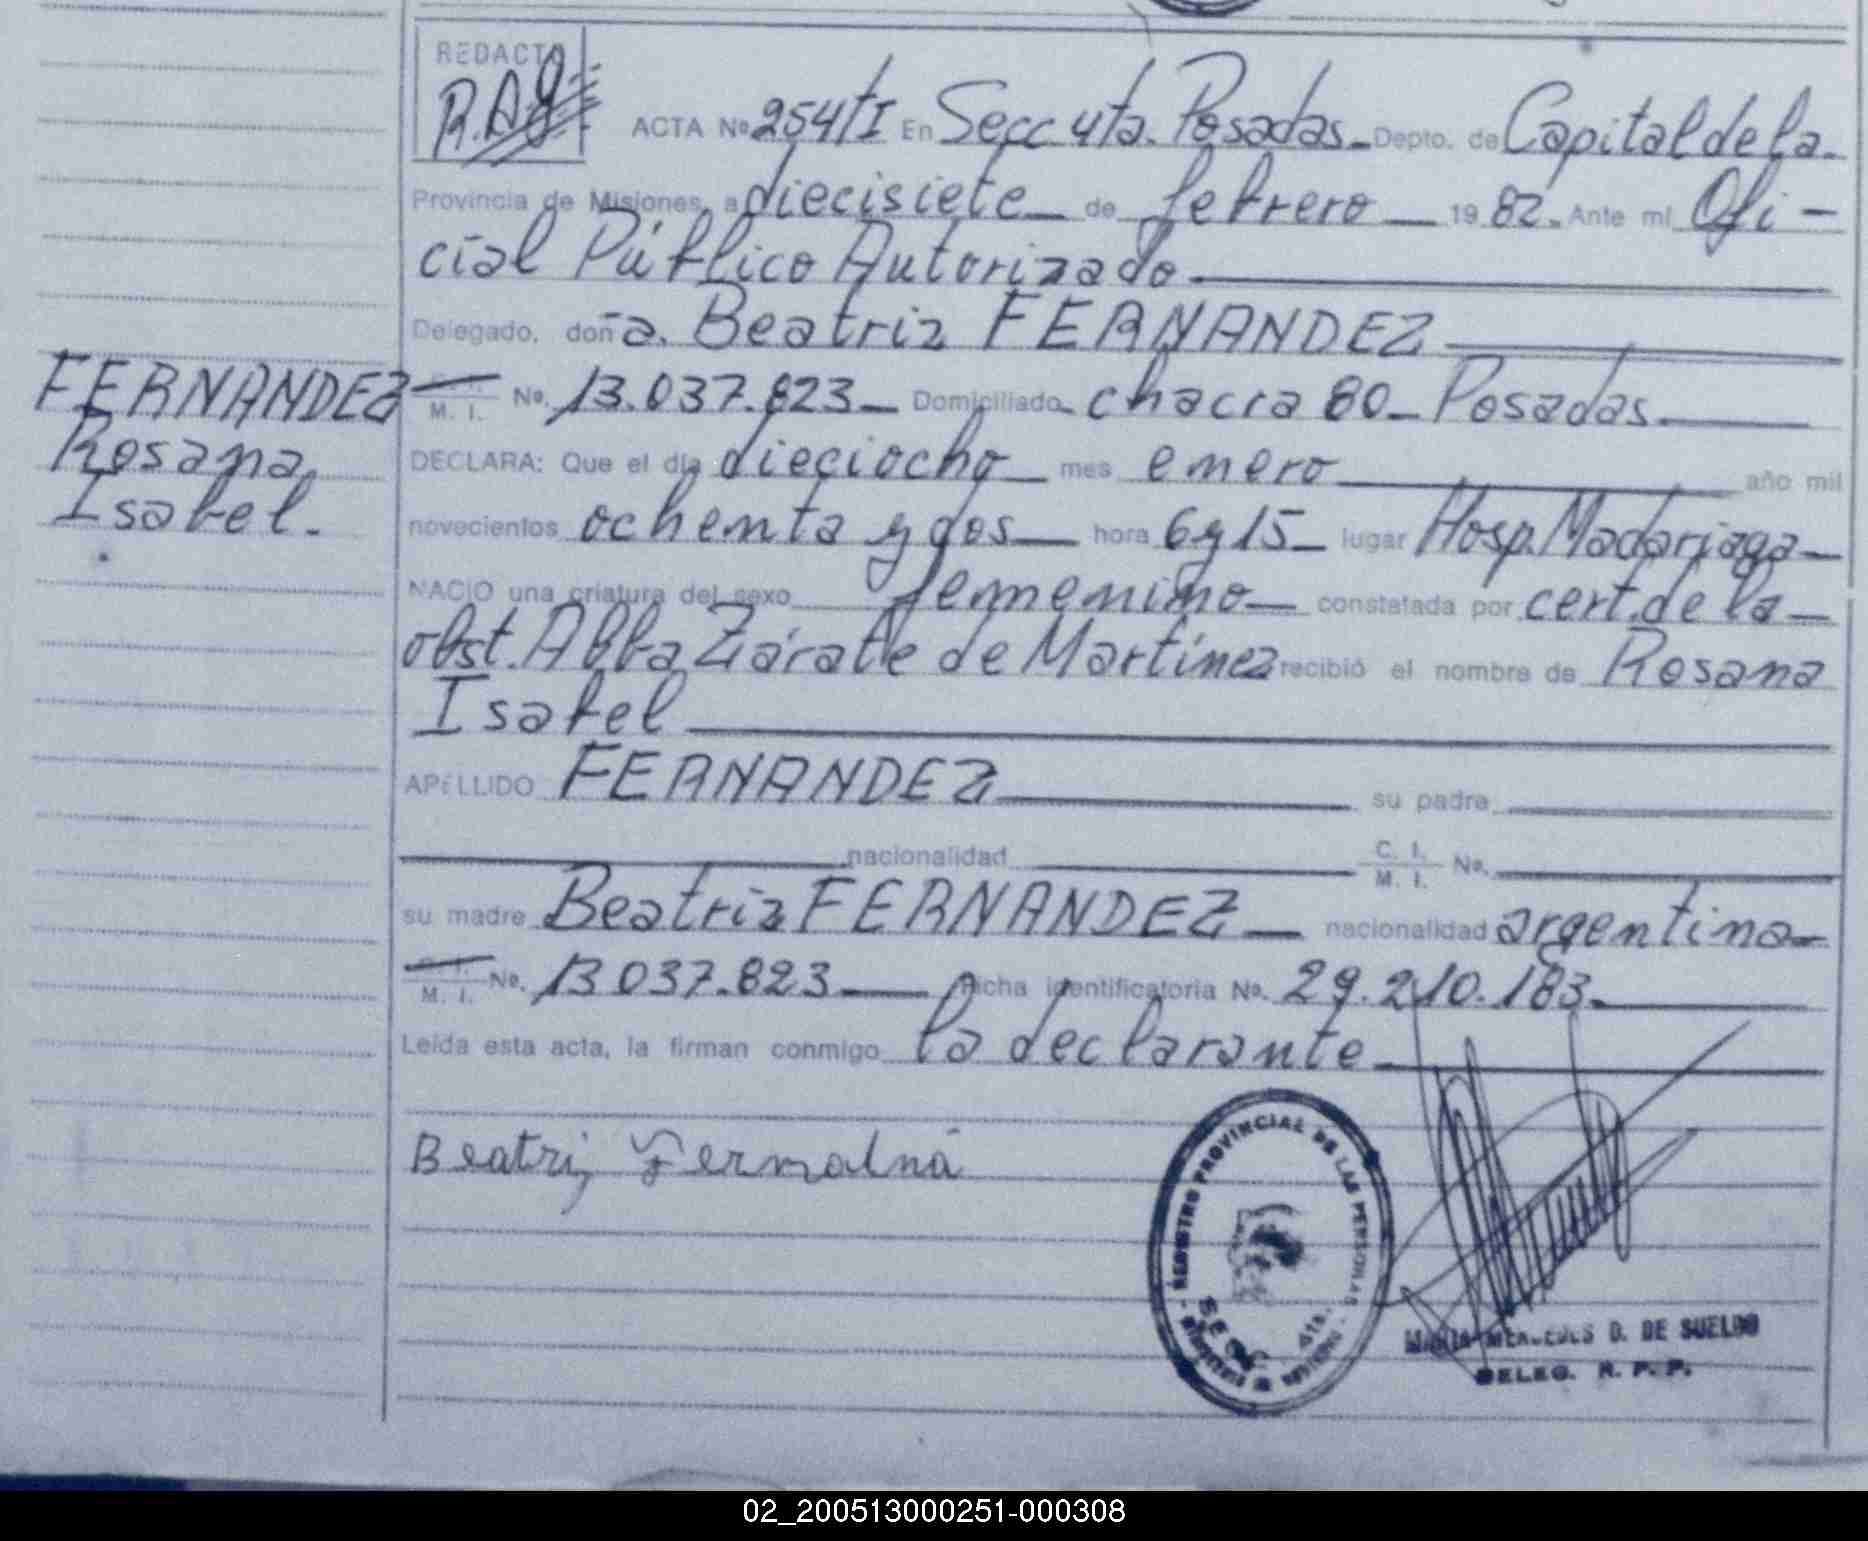 REDACTO
R.A.G.
ACTA Nº 254 tI En Secc 4ta. Posadas Depto. de Capital de la
Provincia de Misiones, a diecisiete de febrero 19 82. Ante mí Ofi-
cial Público Autorizado
Delegado, doña. Beatriz FERNANDEZ
C. I. / M. I. Nº. 13.037.823 Domiciliado chacra 80 Posadas
FERNANDEZ
Rosana
Isabel.
DECLARA: Que el día dieciocho mes enero año mil
novecientos ochenta y dos hora 6 y 15 lugar Hosp. Madariaga
NACIO una criatura del sexo femenino constatada por cert. de la
obst. Alba Zárate de Martínez recibió el nombre de Rosana
Isabel
APELLIDO FERNANDEZ su padre
nacionalidad C. I. / M. I. Nº.
su madre Beatriz FERNANDEZ nacionalidad argentina
C. I. / M. I. Nº. 13037.823 Ficha identificatoria Nº. 29.210.183.
Leída esta acta, la firman conmigo la declarante
Beatriz
REGISTRO PROVINCIAL DE LAS PERSONAS
SECC. 4ta.
MINISTERIO DE GOBIERNO
MARIA MERCEDES D. DE SUELDO
DELEG. R. P. P.
02_200513000251-000308